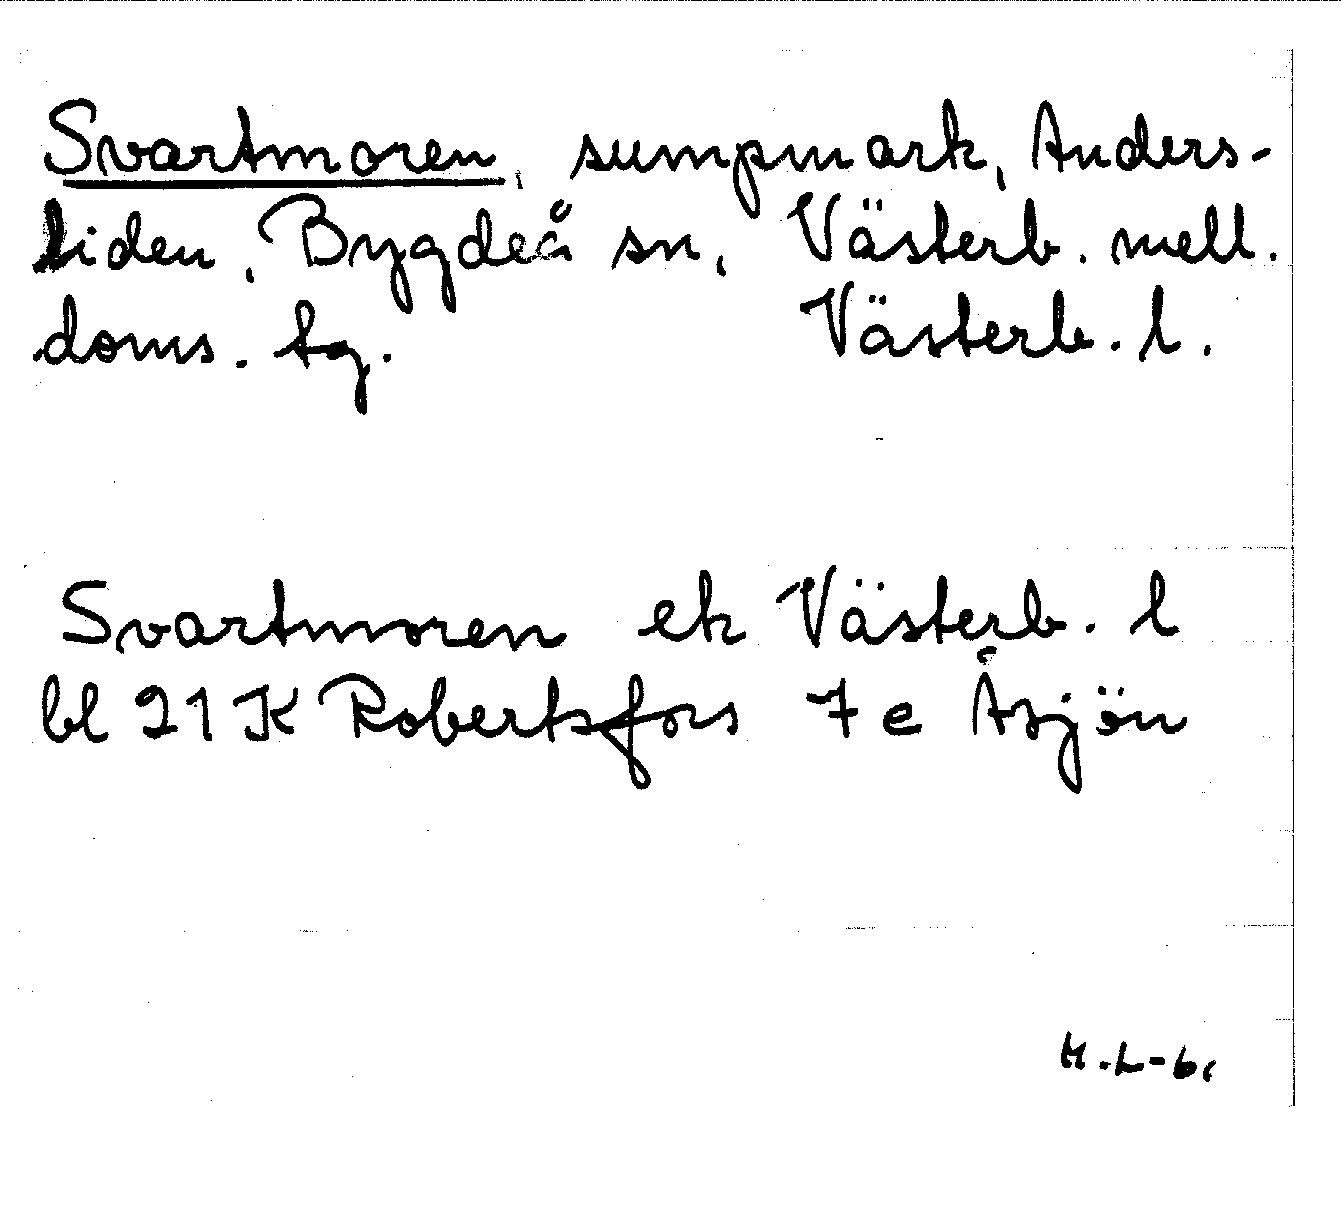 Svartmoren, sumpmark, Anders-
liden, Bygdeå sn, Västerb. mell.
doms. tg. Västerb. l.
Svartmoren ek Västerb. l
bl 21 K Robertsfors 7 e Åsjön
H.L-b.